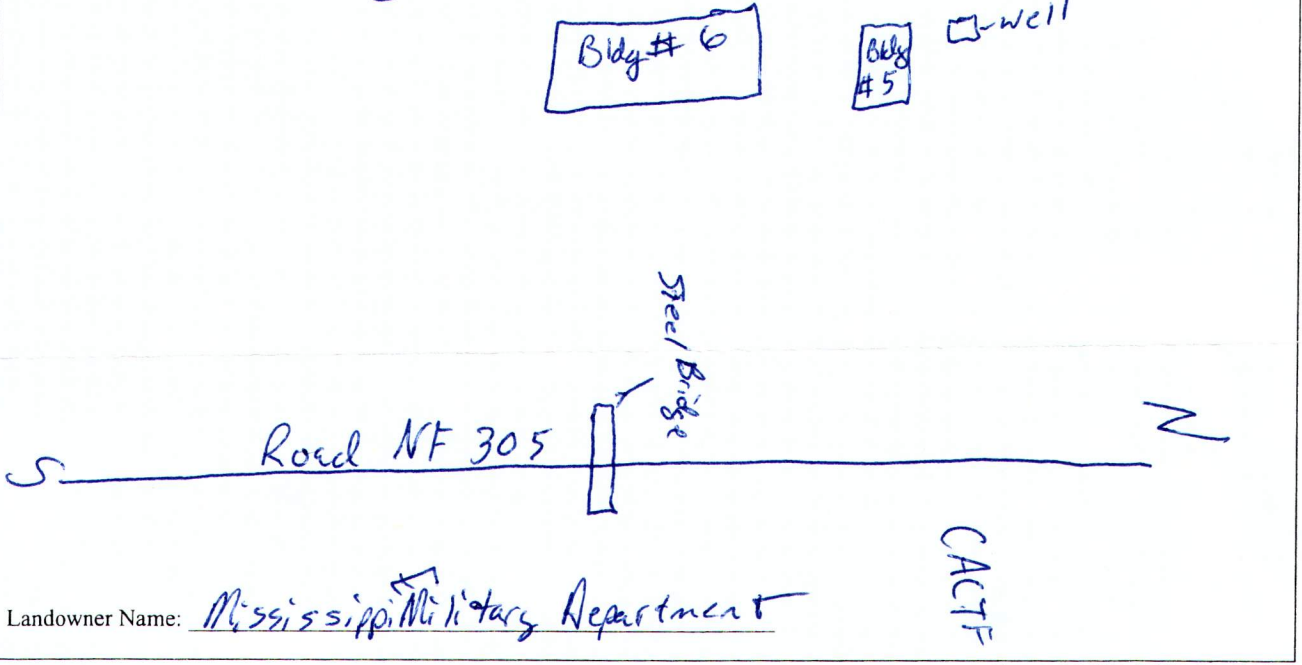 Bldg # 6
Bldg
# 5
well
Steel Bridge
Road NF 305
S
N
CACTF
Landowner Name: Mississippi Military Department